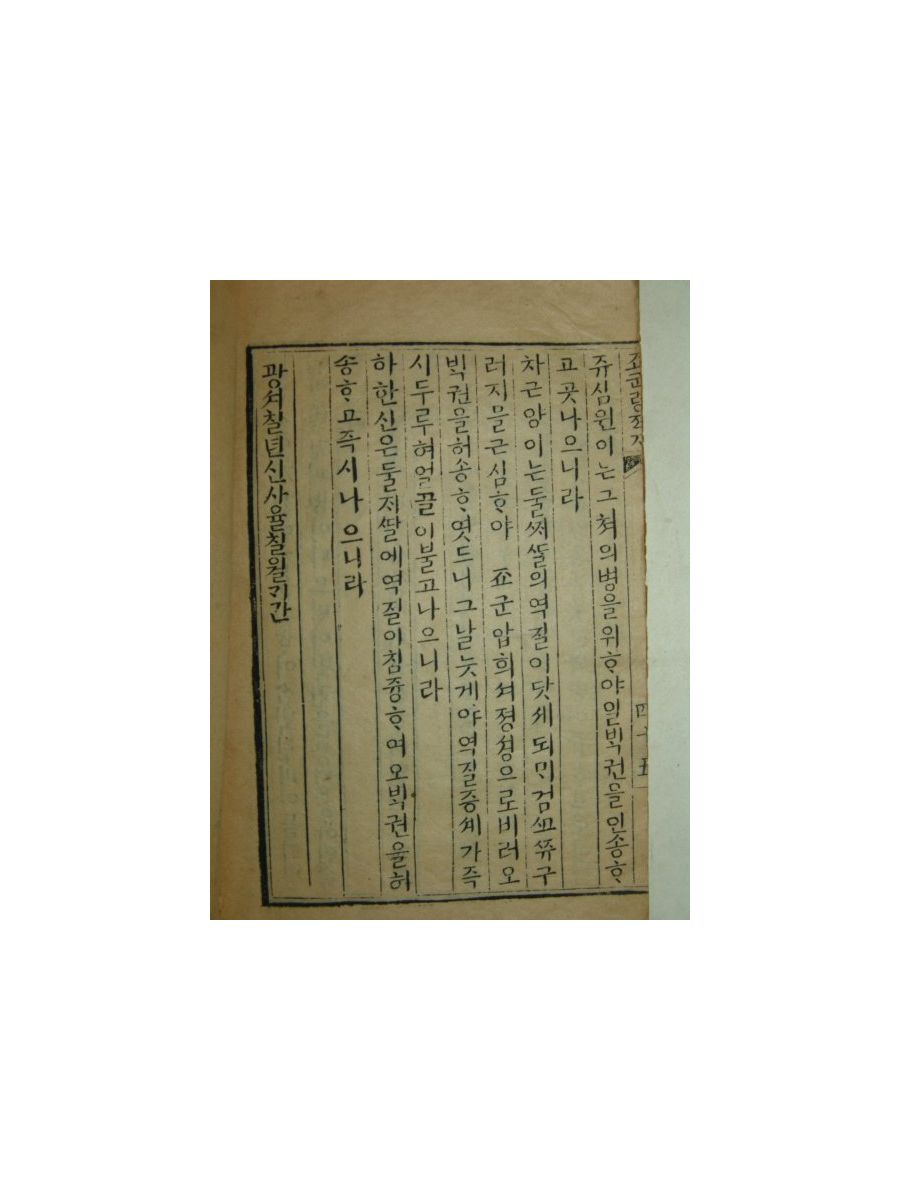 조군령젹지 四十五
쥬심원이는그쳐의병을위ᄒᆞ야일ᄇᆡᆨ권을인송ᄒᆞ
고곳나으니라
차근양이는둘ᄶᅢᄯᅡᆯ의역질이닷ᄉᆡ되ᄆᆡ검
러지믈근심ᄒᆞ야 죠군압희셔졍셩으로비러오
ᄇᆡᆨ권을허송ᄒᆞ엿드니그날늣게야역질증셰가즉
시두루혀얼골이불고나으니라
하한신은둘ᄌᆡᄯᅡᆯ에역질이침즁ᄒᆞ여오ᄇᆡᆨ권을허
송ᄒᆞ고즉시나으니라
광셔칠년신사윤칠월ᄀᆡ간